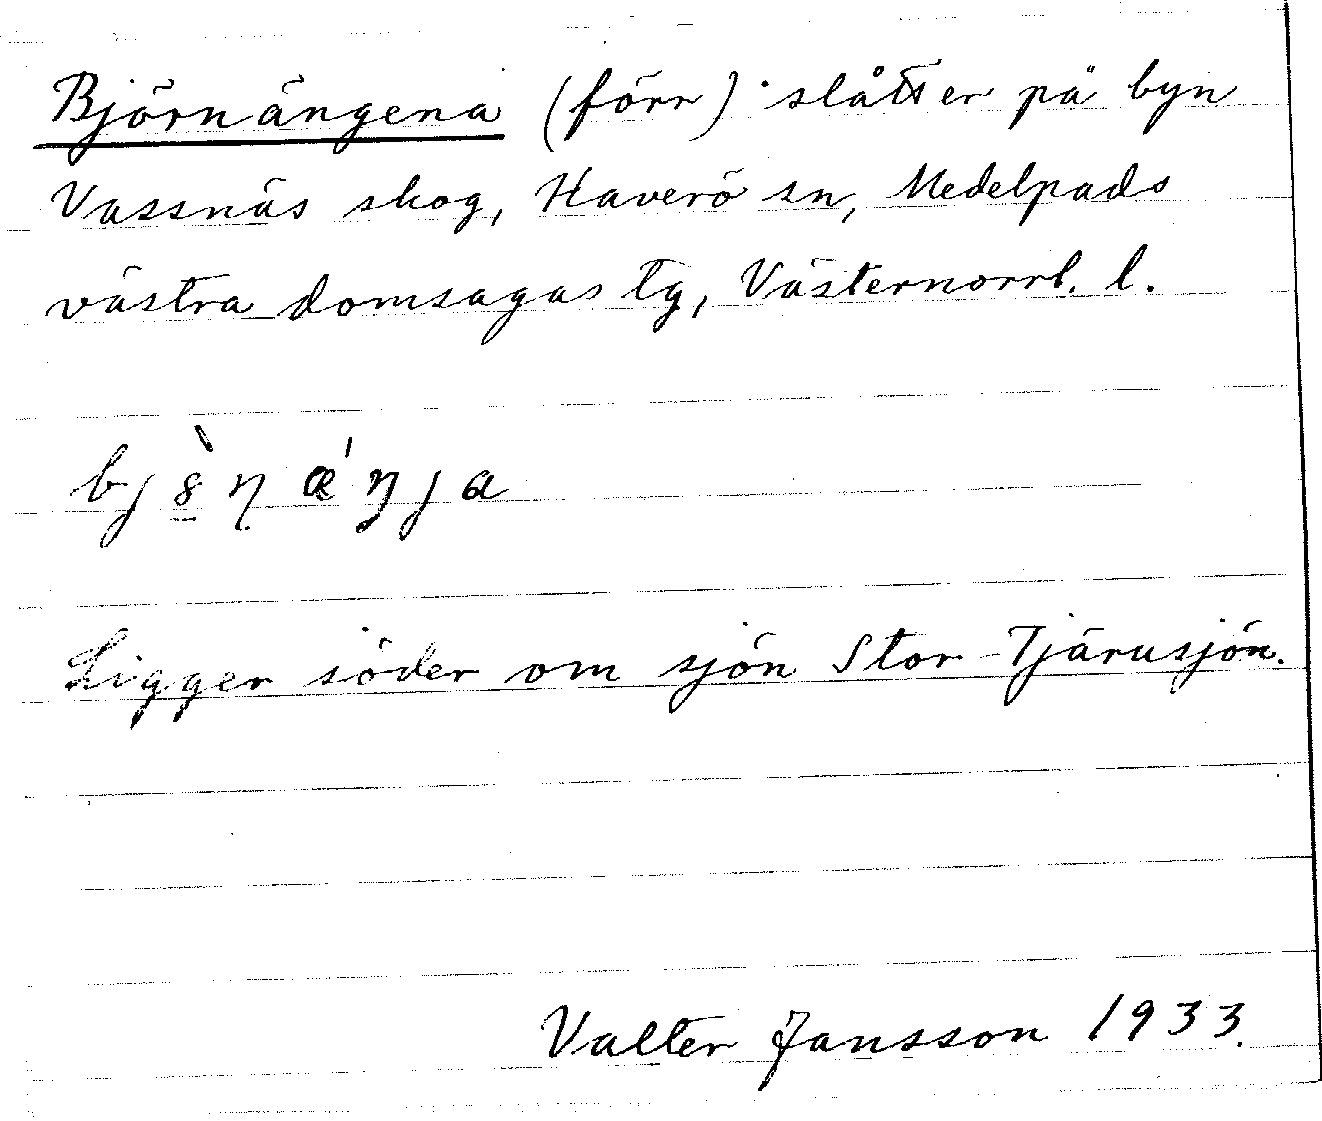 Björnängena (förr) slåtter på byn
Vassnäs skog, Haverö sn, Medelpads
västra domsagas tg, Västernorrl. l.
bjö̀ɳǽŋja
Ligger söder om sjön Stor-Tjärusjön.
Valter Jansson 1933.